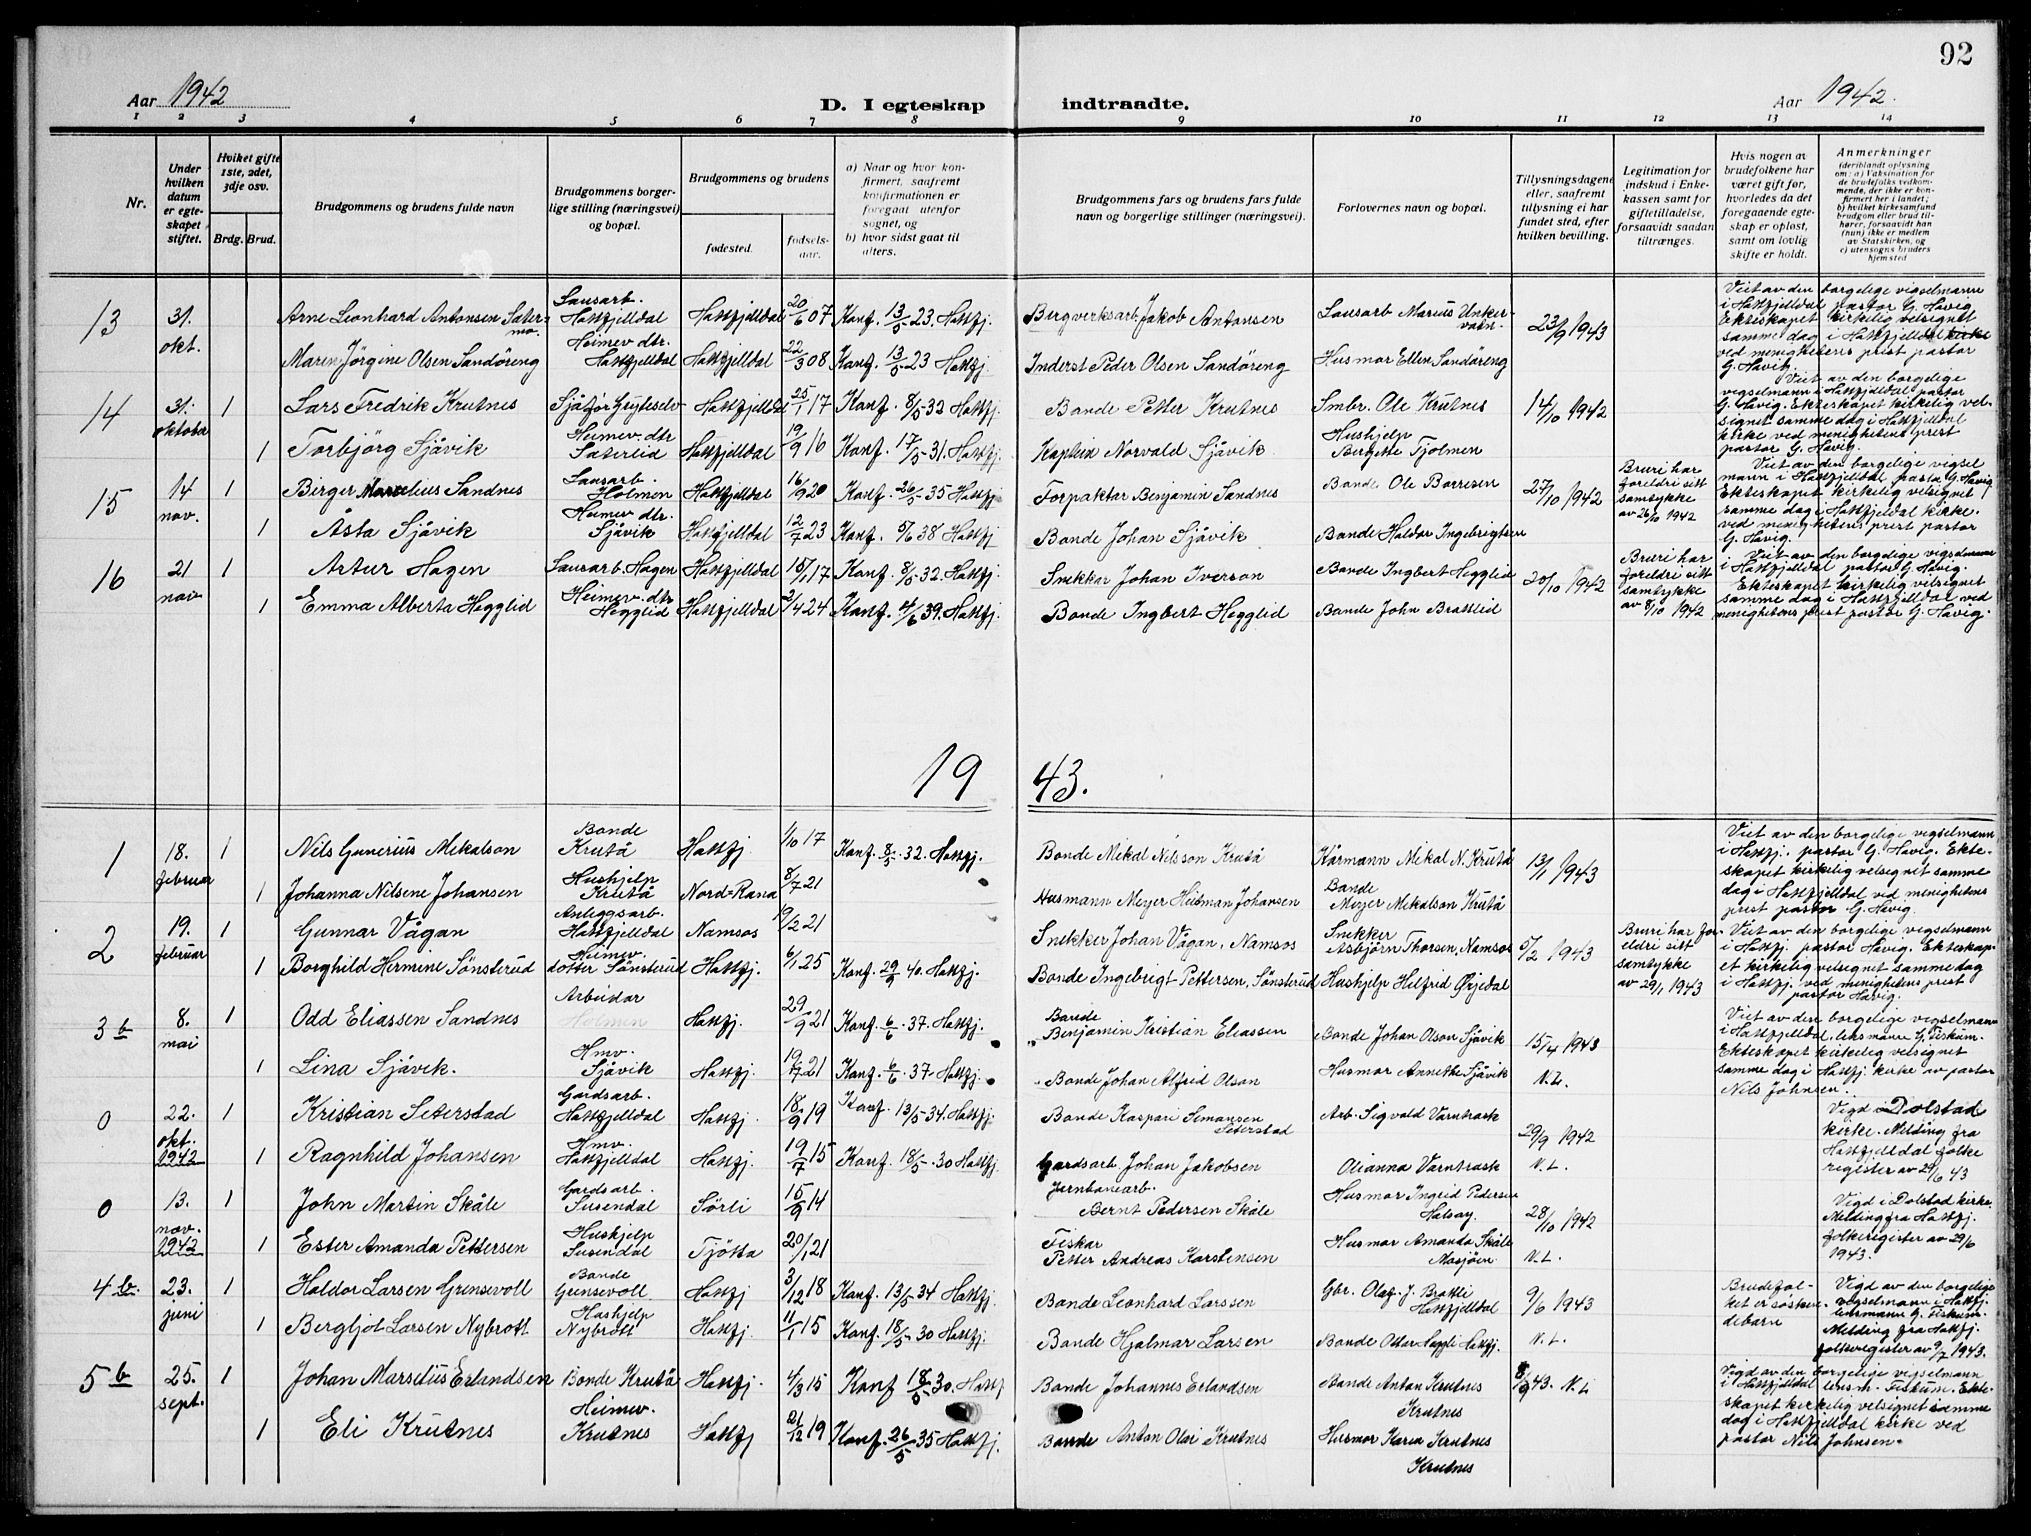 92
Aar 1942
D. I egteskap indtraadte.
Aar 1942.
1 2 3 4 5 6 7 8 9 10 11 12 13 14
Nr.
Under hvilken datum er egteskapet stiftet.
Hvilket gifte 1ste, 2det, 3dje osv.
Brdg. Brud.
Brudgommens og brudens fulde navn
Brudgommens borgerlige stilling (næringsvei) og bopæl.
Brudgommens og brudens
fødested.
fødselsaar.
a) Naar og hvor konfirmert, saafremt konfirmationen er foregaat utenfor sognet, og
b) hvor sidst gaat til alters.
Brudgommens fars og brudens fars fulde navn og borgerlige stillinger (næringsvei).
Forlovernes navn og bopæl.
Tillysningsdagene eller, saafremt tillysning ei har fundet sted, efter hvilken bevilling.
Legitimation for indskud i Enkekassen samt for giftetilladelse, forsaavidt saadan tiltrænges.
Hvis nogen av brudefolkene har været gift før, hvorledes da det foregaaende egteskap er opløst, samt om lovlig skifte er holdt.
Anmerkninger
(deriblandt oplysning om: a) Vaksination for de brudefolks vedkommende, der ikke er konfirmert her i landet; b) hvilket kirkesamfund brudgom eller brud tilhører, forsaavidt han (hun) ikke er medlem av Statskirken, og c) utensogns bruders hjemsted
13 31. okt. Arne Leonhard Antonsen Sætermo. Lausarb. Hattfjelldal Hattfjelldal 20/6 07 Konf. 13/5 23. Hattfj. Bergverksarb. Jakob Antonsen Lausarb Marius Unkervatn. 23/9 1943
Maren Jörgine Olsen Sandöreng Heimev dtr. Hattfjelldal Hattfjelldal 22/3 08 Konf. 13/5 23 Hattfj. Inderst Peder Olsen Sandöreng Husmor Ellen Sandöreng
Viet av den borgelige vigselmann i Hattfjelldal pastor G. Havig. Ekteskapet kirkelig velsignet samme dag i Hattfjelldal kirke ved menighetens prest pastor G. Havig.
14 31. oktober 1 Lars Fredrik Krutnes Sjåfør Hattfjelldal 25/1 17 Konf. 8/5 32 Hattfj. Bonde Petter Krutnes Smbr. Ole Krutnes 14/10 1942
1 Torbjörg Sjåvik Heimev. dtr Sæterlid Hattfjelldal 19/9 16 Konf. 17/5 31. Hattfj. Kaptein Norvald Sjåvik Hushjelp Bergette Tjolmen
Viet av den borgelige vigselmann i Hattfjelldal pastor G. Havig. Ekteskapet kirkelig velsignet samme dag i Hattfjelldal kirke ved menighetens prest pastor G. Havig.
15 14 nov. 1 Berger Marselius Sandnes Lausarb. Holmen Hattfjelldal 16/9 20 Konf. 26/5 35 Hattfj. Forpaktar Benjamin Sandnes Bonde Ole Borresen 27/10 1942 Bruri har foreldri sitt samtykke av 26/10 1942
1 Åsta Sjåvik Heimev dtr. Sjåvik Hattfjelldal 12/7 23 Konf. 5/6 38 Hattfj Bonde Johan Sjåvik Bonde Haldor Ingebrigtsen
Viet av den borgelige vigselmann i Hattfjelldal pastor G. Havig. Ekteskapet kirkelig velsignet samme dag i Hattfjelldal kirke ved menighetens prest pastor G. Havig.
16 21 nov 1 Artur Hagen Lausarb. Hagen Hattfjelldal 15/1 17 Konf. 8/5 32. Hattfj. Snekker Johan Iverson Bonde Ingbert Hegglid 20/10 1942 Bruri har foreldri sitt samtykke av 8/10 1942
1 Emma Alberta Hegglid Heimev. dtr Hegglid Hattfjelldal 2/4 24 Konf. 4/6 39. Hattfj. Bonde Ingbert Hegglid Bonde John Brattlid
Viet av den borgelige vigselmann i Hattfjelldal pastor G. Havig. Ekteskapet kirkelig velsignet samme dag i Hattfjelldal ved menighetens prest pastor G. Havig.
19 43.
1 18. februar 1 Nils Gunerius Mekalson Bonde Krutå Hattfj. 1/10 17 Konf. 8/5 32. Hattfj. Bonde Mekal Nilsson Krutå Kårmann Mikal N. Krutå 13/1 1943
1 Johanna Nilsene Johansen Hushjelp Krutå Nord=Rana 8/7 21 Husmann Meyer Heitman Johansen Bonde Meyer Mikalson Krutå
Viet av den borgelige vigselmann i Hattfj. pastor G. Havig. Ekteskapet kirkelig velsignet samme dag i Hattfjelldal ved menighetens prest pastor G. Havig.
2 19. februar 1 Gunnar Vågan Anleggsarb. Hattfjelldal Namsos 19/2 21 Snekker Johan Vågan, Namsos Snekker Asbjørn Thorsen, Namsos 5/2 1943 Bruri har foreldri sitt samtykke av 29/1 1943
1 Borghild Hermine Sönsterud Heimev dotter Sönsterud Hattfj. 6/1 25 Konf. 29/9 40. Hattfj. Bonde Ingebrigt Pettersen, Sønsterud Hushjelp Helfrid Øvjedal
Viet av den borgelige vigselmann i Hattfj. pastor Havig. Ekteskapet kirkelig velsignet samme dag i Hattfj. ved menighetens prest pastor Havig.
3 b 8. mai 1 Odd Eliassen Sandnes Arbeidar Holmen Hattfj. 29/9 21 Konf. 6/6 37. Hattfj. Bonde Benjamin Kristian Eliassen Bonde Johan Olson Sjåvik 15/4 1943
1 Lina Sjåvik. Hmv. Sjåvik Hattfj. 19/7 21 Konf. 6/6 37. Hattfj. Bonde Johan Alfrid Olson Husmor Annette Sjåvik N.L.
Viet av den borgelige vigselmann i Hattfjelldal, lensmann G. Fiskum. Ekteskapet kirkelig velsignet samme dag i Hattfj. kirke av pastor Nils Johnsen.
0 22. okt. 1942 1 Kristian Seterstad Gårdsarb. Hattfjelldal Hattfj. 18/9 19 Konf. 13/5 34. Hattfj. Bonde Kaspari Simonsen Seterstad Arb. Sigvald Varntrask 29/9 1942
1 Ragnhild Johansen Hmv. Hattfjelldal Hattfj. 19/7 15 Konf. 18/5 30 Hattfj. Gardsarb Johan Jakobsen Olianna Varntrask N.L.
Vigd i Dolstad kirke. Melding fra Hattfjelldal folkeregister av 29/6 43
0 13. nov. 1942 1 John Martin Skåle Gardsarb. Susendal Sörli 15/9 14 Jernbanearb. Bernt Pedersen Skåle Husmor Ingrid Pedersen Halsøy. 28/10 1942
1 Ester Amanda Pettersen Hushjelp Susendal Tjötta 20/1 21 Fiskar Petter Andreas Karstensen Husmor Amanda Skåle Mosjøen N.L.
Vigd i Dolstad kirke. Melding fra Hattfj. folkeregister av 29/6 1943.
4 b. 23. juni 1 Haldor Larsen Grensevoll Bonde Grensevoll Hattfj 3/12 18 Konf. 13/5 34 Hattfj. Bonde Leonhard Larssen Gbr. Olaf J. Brattli Hattfjelldal 9/6 1943 Brudefolket er søskendebarn
1 Bergljot Larsen Nybrott Hushjelp Nybrott Hattfj. 11/1 15 Konf. 18/5 30 Hattfj. Bonde Hjalmar Larsen Bonde Ottar Heggli Hattfj. N.L.
Vigd av den borgelige vigselmann i Hattfj. lensmann G. Fiskum. Melding fra Hattfj. folkeregister av 9/7 1943.
5 b 25. sept. 1 Johan Marselius Erlandsen Bonde Krutå Hattfj. 4/3 15 Konf 18/5 30. Hattf Bonde Johannes Erlandsen Bonde Anton Krutnes Krutnes 8/9 43. N.L
1 Eli Krutnes Heimev. Krutnes Hattfj 21/12 19 Konf. 26/5 35 Hattfj. Bonde Anton Olai Krutnes Husmor Karen Krutnes Krutnes
Vigd av den borgelige vigselmann i Hattfjelldal lensm. Fiskum. Ekteskapet kirkelig velsignet samme dag i Hattfjelldal kirke ved pastor Nils Johnsen.